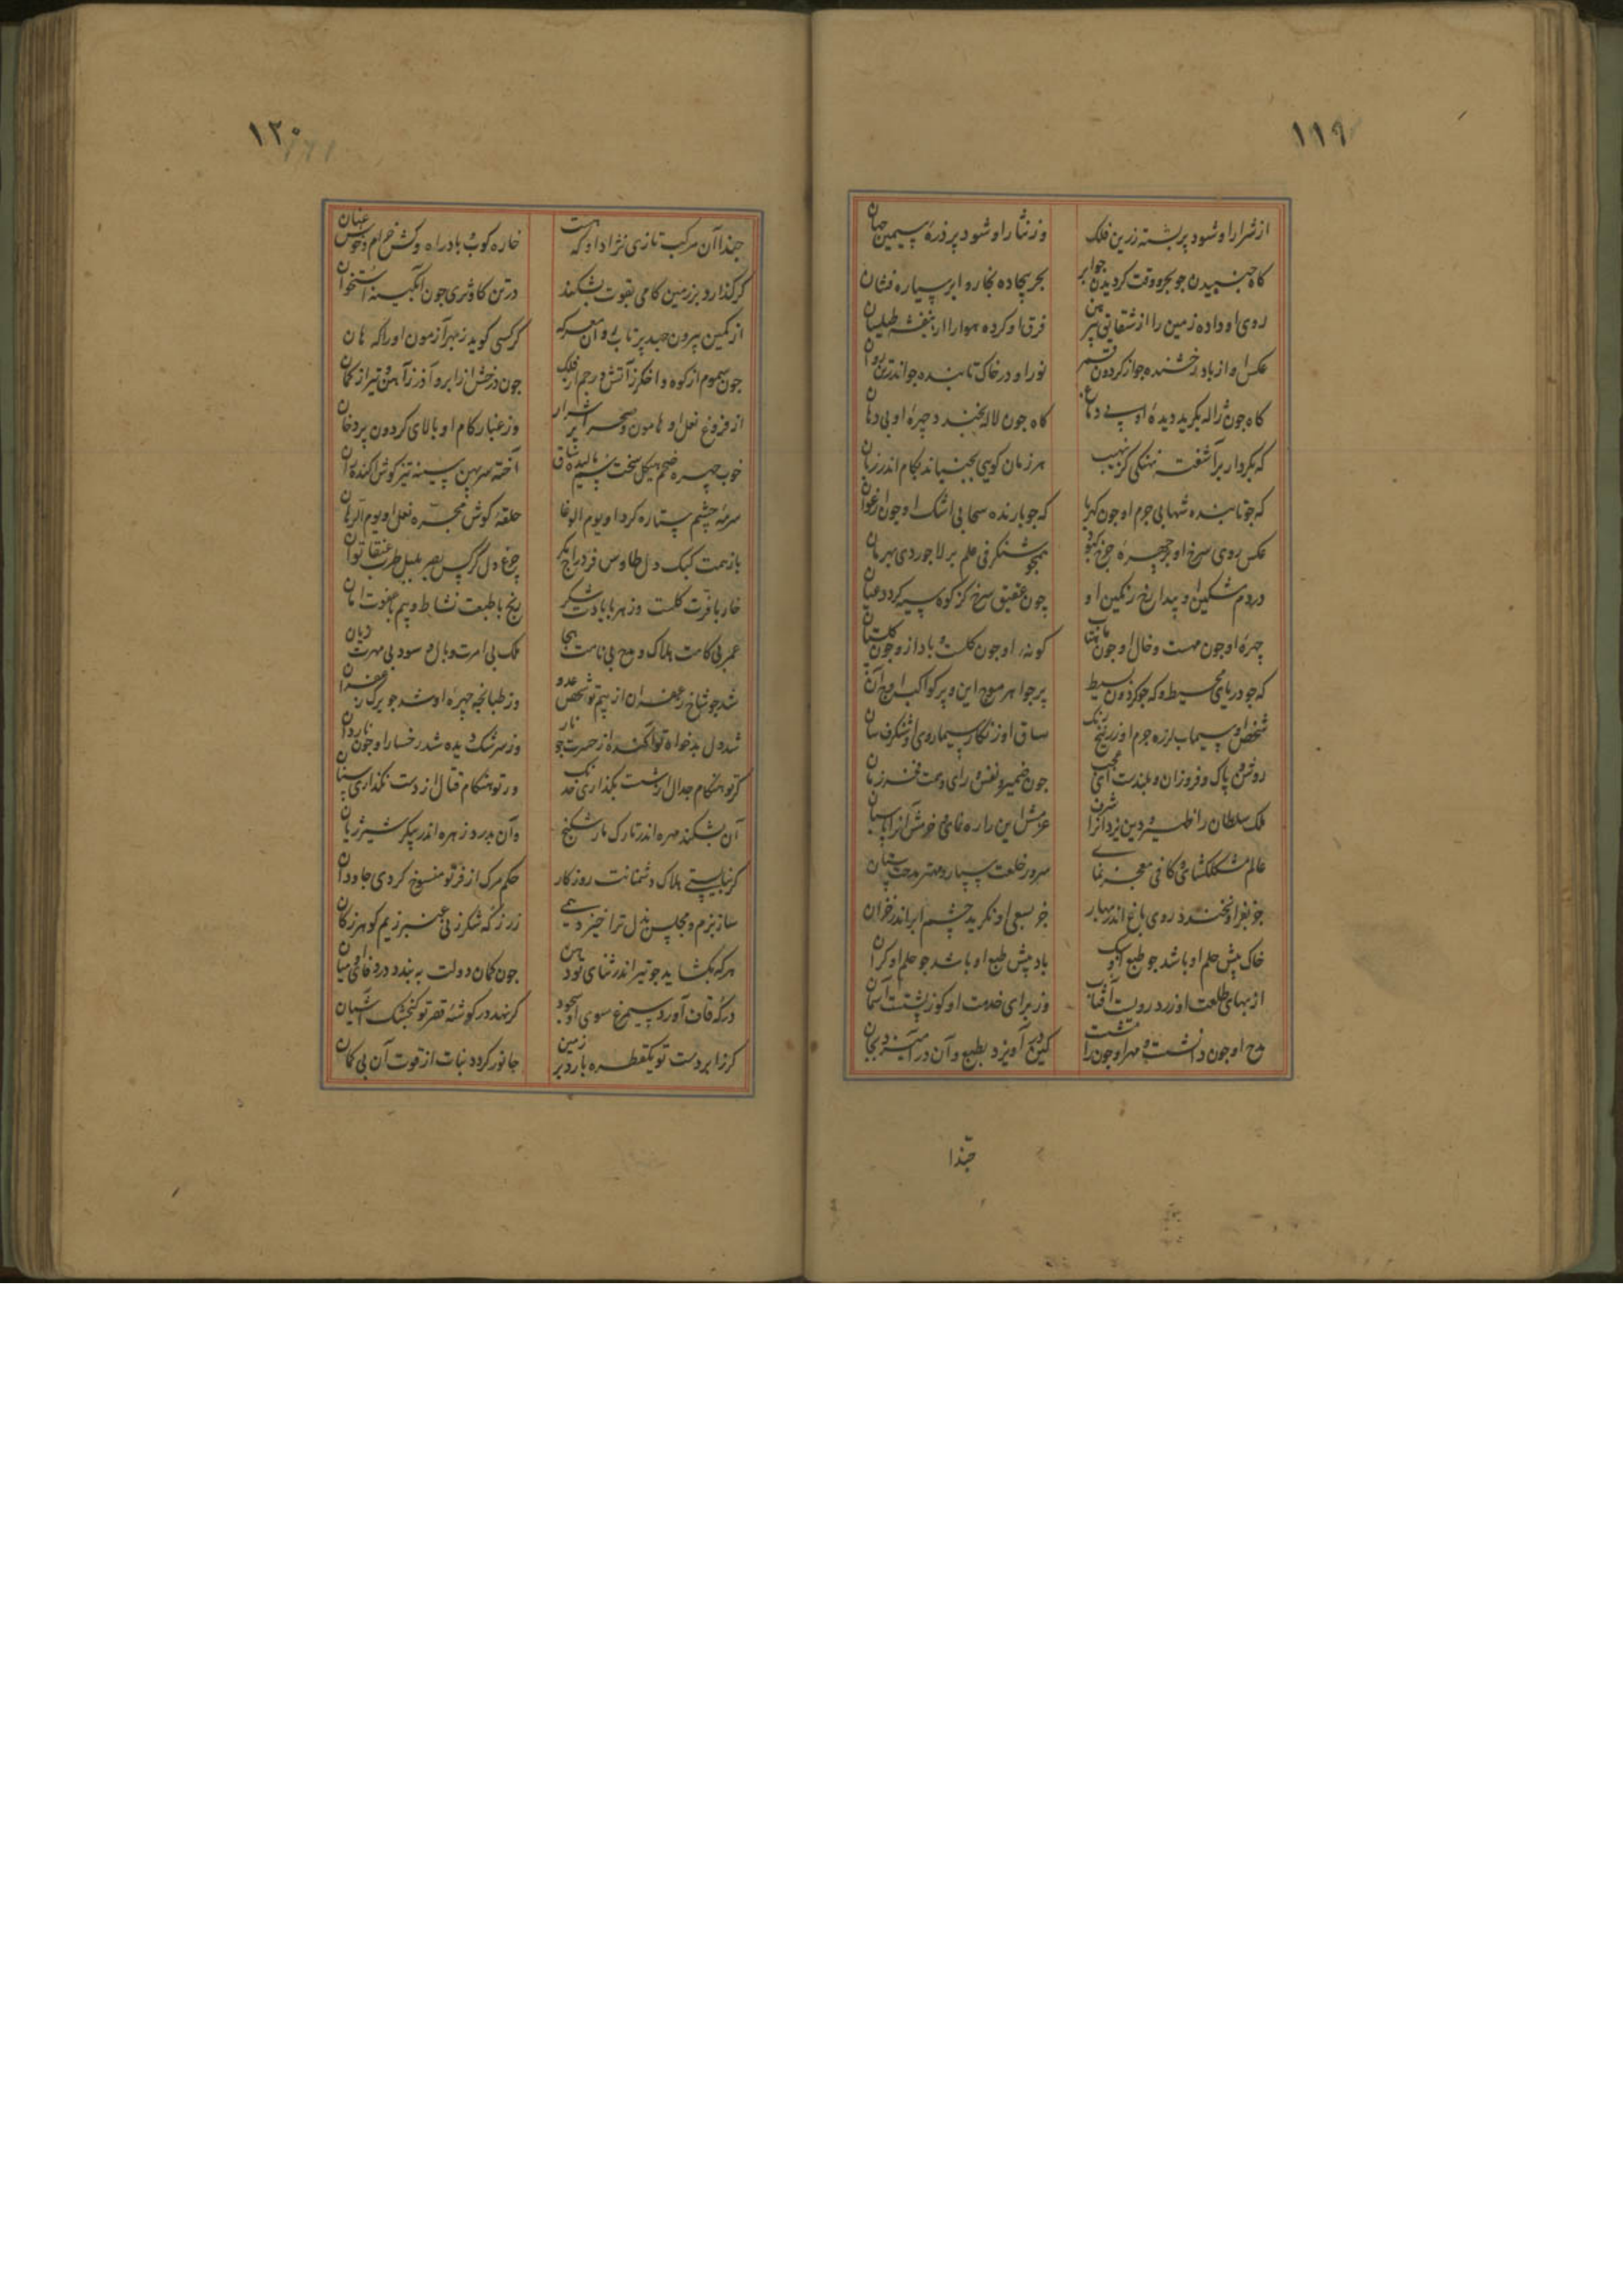 ۱۱۹
از شرار او شود پر بشه زرین فلک وز نثار او شود پر ذره سیمین جهان
کاه جنبیدن جو بحر و وقت کردیدن جو ابر بحر بیجاده بخار و ابر سیاره فشان
روی او داده زمین را از شقایق پیرهن فرق او کرده هوا را از بنفشه طیلسان
عکس او از باد رخشنده جو از کردون نور او در خاک تابنده جو اندر تن روان
کاه جون ژاله بکرید دیده او بی دماغ کاه جون لاله بخندد چهره او بی دهان
که بکردار برآشفته نهنکی کز نهیب هر زمان کویی بجنباند بکام اندر زبان
که جو تابنده شهابی جرم او جون کهربا که جو بارنده سحابی اشک او جون ارغوان
عکس روی سرخ او بر چهره چرخ کبود همجو شنکرفی علم بر لاجوردی بهرمان
در دم مشکین او پیدا رخ رنکین او چون عقیق سرخ کز کوه سیه کردد عیان
چهره او جون مهست و خال او جون ماهتاب کونه او جون کلست و باد ازو جون کلستان
که جو دریای محیط و که جو کردون بسیط پر جواهر موج این و پر کواکب اوج آن
شخص او سیماب لرزه جرم او زرنیخ رنک ساق او زنکار سیما روی او شنکرف سان
روشن و پاک و فروزان و بلندست ای عجب جون ضمیر و نفس و رای و همت فخر زمان
ملک سلطان را ظهیر و دین یزدان را شرف عزمش این را رهنمای و حزمش آنرا پاسبان
عالم مشکلکشای کافی معجز نمای سرور خلعت سپار و مهتر مدحت ستان
جز بفر او نخندد روی باغ اندر بهار جز بسعی او نکرید چشم ابر اندر خزان
خاک پیش حلم او باشد جو طبع او سبک باد پیش طبع او باشد جو حلم او کران
از بهای طلعت او زرد رویست آفتاب وز برای خدمت او کوز پشتست آسمان
مدح او جون دانشست و مهر او جون رامشست کین در آویزد بطبع و آن در آمیزد بجان
حبّذا
۱۲۰
حبذا آن مرکب تازی نژاد او که هست خاره کوب و باد راه و کش خرام و خوش عنان
کر کذارد بر زمین کامی بقوت بشکند در تن کاو ثری جون آبکینه استخوان
از کمین بیرون جهد پرتاب روز معرکه کر کسی کوید ز بهر آزمون او را که هان
جون سموم از کوه و اخکر ز آتش و رجم از فلک جون درخش از ابر و آذر ز آهن و تیر از کمان
از فروغ نعل او هامون و صحرا پر شرار وز غبار کام او بالای کردون پر دخان
خوب چهره ضخم هیکل سخت سم بالیده ساق آخته سر پهن سینه تیز کوش آکنده ران
سرمه چشم ستاره کرد او یوم الوغا حلقه کوش مجره نعل او یوم الرهان
باز همت کبک دل طاوس فر دراج بکر چرغ دل کرکس بصر بلبل طرب عنقا توان
خار با فرت کلست و زهر با یادت شکر رنج با طبعت نشاط و بیم با عونت امان
عمر بی کامت هلاک و مدح بی نامت هجا ملک بی امرت وبال و سود بی مهرت زیان
شد جو شاخ زعفران از بیم تو شخص عدو وز طپانجه چهره او شد جو برک زعفران
شد دل بدخواه تو آکنده از حسرت جو نار وز سرشک دیده شد رخسار او جون ناردان
کر تو هنکام جدال از شست بکذاری خدنک ور تو هنکام قتال از دست بکذاری سنان
آن بشکند مهره اندر تارک مار شکنج وآن بدرد زهره اندر پیکر شیر ژیان
کر نبایستی هلاک دشمنانت روزکار حکم مرک از فر تو منسوخ کردی جاودان
ساز بزم و مجلس بذل ترا خیزد همی زر ز که شکر ز نی عنبر ز یم کوهر ز کان
هرکه بکشاید جو تیر اندر ثنای تو دهن جون کمان دولت به بندد در وفای او میان
در که قاف آورد سیمرغ سوی او سجود کر نهد در کوشه قصر تو کنجشک آشیان
کر ز ابر دست تو یک قطره بارد بر زمین جانور کردد نبات از قوت آن بی کمان